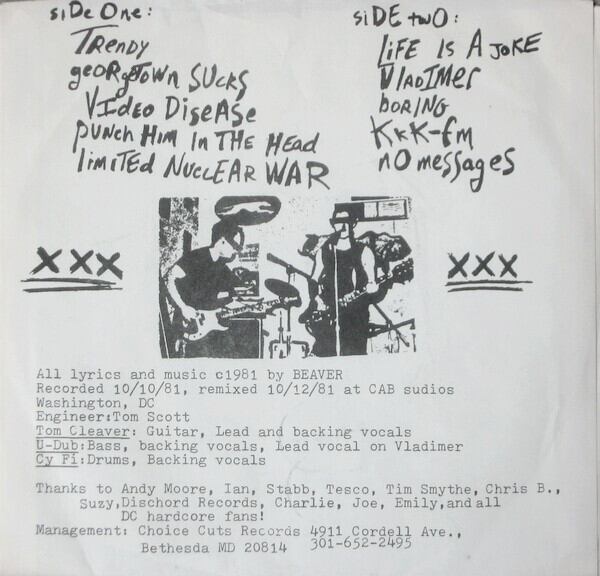 siDe One:
TRENDY
geoRgTOWN SUCKS
VIDEO DISEASE
PUNCH HIM IN THE HEAD
LIMITED NUCLEAR WAR
siDE twO:
LIFE IS A JOKE
VLADIMER
BORING
KKK-fm
NO messages
XXX
XXX
All lyrics and music c1981 by BEAVER
Recorded 10/10/81, remixed 10/12/81 at CAB sudios
Washington, DC
Engineer:Tom Scott
Tom Cleaver: Guitar, Lead and backing vocals
U-Dub:Bass, backing vocals, Lead vocal on Vladimer
Cy Fi:Drums, Backing vocals
Thanks to Andy Moore, Ian, Stabb, Tesco, Tim Smythe, Chris B.,
Suzy,Dischord Records, Charlie, Joe, Emily,and all
DC hardcore fans!
Management: Choice Cuts Records 4911 Cordell Ave.,
Bethesda MD 20814 301-652-2495